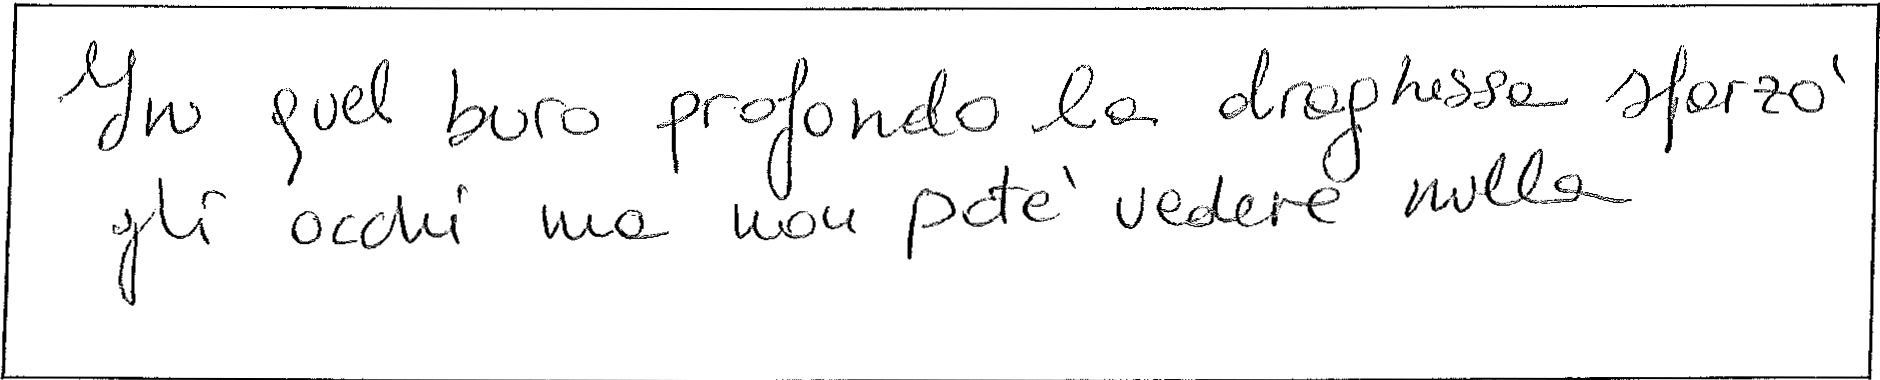 In quel buro profondo la draghessa sforzò
gli occhi ma non potè vedere nulla